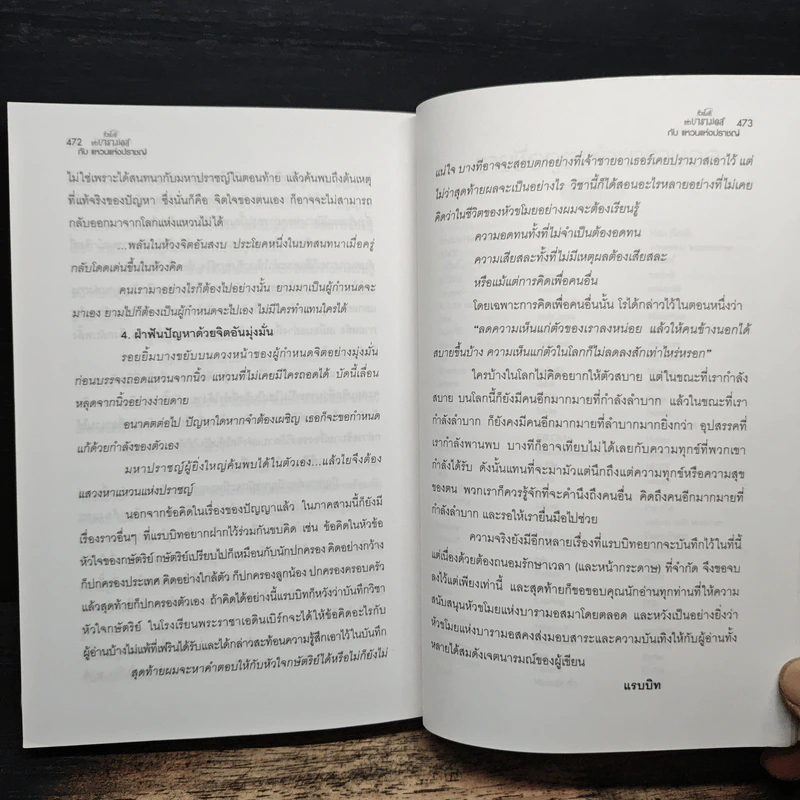 472
หัวขโมย
แห่งบารามอส
กับ แหวนแห่งปราชญ์
ไม่ใช่เพราะได้สนทนากับมหาปราชญ์ในตอนท้าย แล้วค้นพบถึงต้นเหตุ
ที่แท้จริงของปัญหา ซึ่งนั่นก็คือ จิตใจของตนเอง ก็อาจจะไม่สามารถ
กลับออกมาจากโลกแห่งแหวนได้
...พลันในห้วงจิตอันสงบ ประโยคหนึ่งในบทสนทนาเมื่อครู่
กลับโดดเด่นขึ้นในห้วงคิด
คนเรามาอย่างไรก็ต้องไปอย่างนั้น ยามมาเป็นผู้กำหนดจะ
มาเอง ยามไปก็ต้องเป็นผู้กำหนดจะไปเอง ไม่มีใครทำแทนใครได้
4. ฝ่าฟันปัญหาด้วยจิตอันมุ่งมั่น
รอยยิ้มบางขยับบนดวงหน้าของผู้กำหนดจิตอย่างมุ่งมั่น
ก่อนบรรจงถอดแหวนจากนิ้ว แหวนที่ไม่เคยมีใครถอดได้ บัดนี้เลื่อน
หลุดจากนิ้วอย่างง่ายดาย
อนาคตต่อไป ปัญหาใดหากจำต้องเผชิญ เธอก็จะขอกำหนด
แก้ด้วยกำลังของตัวเอง
มหาปราชญ์ผู้ยิ่งใหญ่ค้นพบได้ในตัวเอง...แล้วใยจึงต้อง
แสวงหาแหวนแห่งปราชญ์
นอกจากข้อคิดในเรื่องของปัญญาแล้ว ในภาคสามนี้ก็ยังมี
เรื่องราวอื่นๆ ที่แรบบิทอยากฝากไว้ร่วมกันขบคิด เช่น ข้อคิดในหัวข้อ
หัวใจของกษัตริย์ กษัตริย์เปรียบไปก็เหมือนกับนักปกครอง คิดอย่างกว้าง
ก็ปกครองประเทศ คิดอย่างใกล้ตัว ก็ปกครองลูกน้อง ปกครองครอบครัว
แล้วสุดท้ายก็ปกครองตัวเอง ถ้าคิดได้อย่างนั้นแรบบิทก็หวังว่าบันทึกวิชา
หัวใจกษัตริย์ ในโรงเรียนพระราชาเอดินเบิร์กจะได้ให้ข้อคิดอะไรกับ
ผู้อ่านบ้างไม่แพ้ที่เฟรินได้รับและได้กล่าวสะท้อนความรู้สึกเอาไว้ในบันทึก
สุดท้ายผมจะหาคำตอบให้กับหัวใจกษัตริย์ได้หรือไม่ก็ยังไม่
หัวขโมย
แห่งบารามอส
กับ แหวนแห่งปราชญ์
473
แน่ใจ บางทีอาจจะสอบตกอย่างที่เจ้าชายอาเธอร์เคยปรามาสเอาไว้ แต่
ไม่ว่าสุดท้ายผลจะเป็นอย่างไร วิชานี้ก็ได้สอนอะไรหลายอย่างที่ไม่เคย
คิดว่าในชีวิตของหัวขโมยอย่างผมจะต้องเรียนรู้
ความอดทนทั้งที่ไม่จำเป็นต้องอดทน
ความเสียสละทั้งที่ไม่มีเหตุผลต้องเสียสละ
หรือแม้แต่การคิดเพื่อคนอื่น
โดยเฉพาะการคิดเพื่อคนอื่นนั้น โรได้กล่าวไว้ในตอนหนึ่งว่า
“ลดความเห็นแก่ตัวของเราลงหน่อย แล้วให้คนข้างนอกได้
สบายขึ้นบ้าง ความเห็นแก่ตัวในโลกก็ไม่ลดลงสักเท่าไหร่หรอก”
ใครบ้างในโลกไม่คิดอยากให้ตัวสบาย แต่ในขณะที่เรากำลัง
สบาย บนโลกนี้ก็ยังมีคนอีกมากมายที่กำลังลำบาก แล้วในขณะที่เรา
กำลังลำบาก ก็ยังคงมีคนอีกมากมายที่ลำบากมากยิ่งกว่า อุปสรรคที่
เรากำลังพานพบ บางทีก็อาจเทียบไม่ได้เลยกับความทุกข์ที่พวกเขา
กำลังได้รับ ดังนั้นแทนที่จะมามัวแต่นึกถึงแต่ความทุกข์หรือความสุข
ของตน พวกเราก็ควรรู้จักที่จะคำนึงถึงคนอื่น คิดถึงคนอีกมากมายที่
กำลังลำบาก และรอให้เรายื่นมือไปช่วย
ความจริงยังมีอีกหลายเรื่องที่แรบบิทอยากจะบันทึกไว้ในที่นี้
แต่เนื่องด้วยต้องถนอมรักษาเวลา (และหน้ากระดาษ) ที่จำกัด จึงขอจบ
ลงไว้แต่เพียงเท่านี้ และสุดท้ายก็ขอขอบคุณนักอ่านทุกท่านที่ให้ความ
สนับสนุนหัวขโมยแห่งบารามอสมาโดยตลอด และหวังเป็นอย่างยิ่งว่า
หัวขโมยแห่งบารามอสคงส่งมอบสาระและความบันเทิงให้กับผู้อ่านทั้ง
หลายได้สมดังเจตนารมณ์ของผู้เขียน
แรบบิท